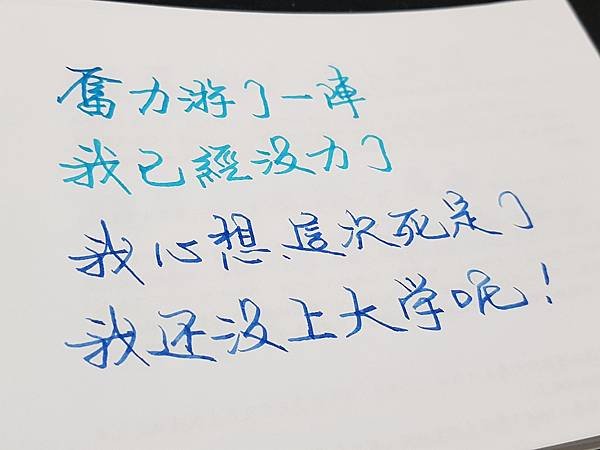 奮力游了一陣
我已經没力了
我心想、這次死定了
我还没上大学呢！